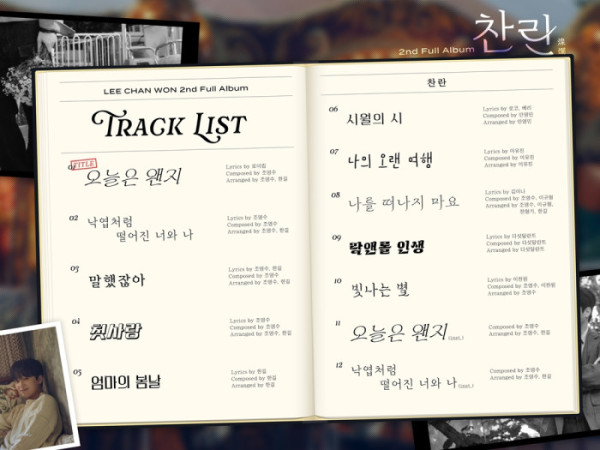 2nd Full Album
찬란
LEE CHAN WON 2nd Full Album
TRACK LIST
TITLE
오늘은 왠지
Lyrics by 로이킴
Composed by 조영수
Arranged by 조영수, 한길
02
낙엽처럼
떨어진 너와 나
Lyrics by 조영수
Composed by 조영수
Arranged by 조영수, 한길
03
말했잖아
Lyrics by 조영수, 한길
Composed by 조영수, 한길
Arranged by 조영수, 한길
04
첫사랑
Lyrics by 조영수
Composed by 조영수
Arranged by 조영수, 한길
05
엄마의 봄날
Lyrics by 한길
Composed by 한길
Arranged by 한길
찬란
06
시월의 시
Lyrics by
Composed by
Arranged by
07
나의 오랜 여행
Lyrics by 이유진
Composed by 이유진
Arranged by 이유진
08
나를 떠나지 마요
Lyrics by 김이나
Composed by 조영수, 이규원
Arranged by 조영수, 이규원,
09
락앤롤 인생
Lyrics by 다섯달란트
Composed by 다섯달란트
Arranged by 다섯달란트
10
빛나는 별
Lyrics by 이찬원
Composed by 조영수, 이찬원
Arranged by 조영수
11
오늘은 왠지 (Inst.)
Composed by 조영수
Arranged by 조영수, 한길
12
낙엽처럼
떨어진 너와 나 (Inst.)
Composed by 조영수
Arranged by 조영수, 한길